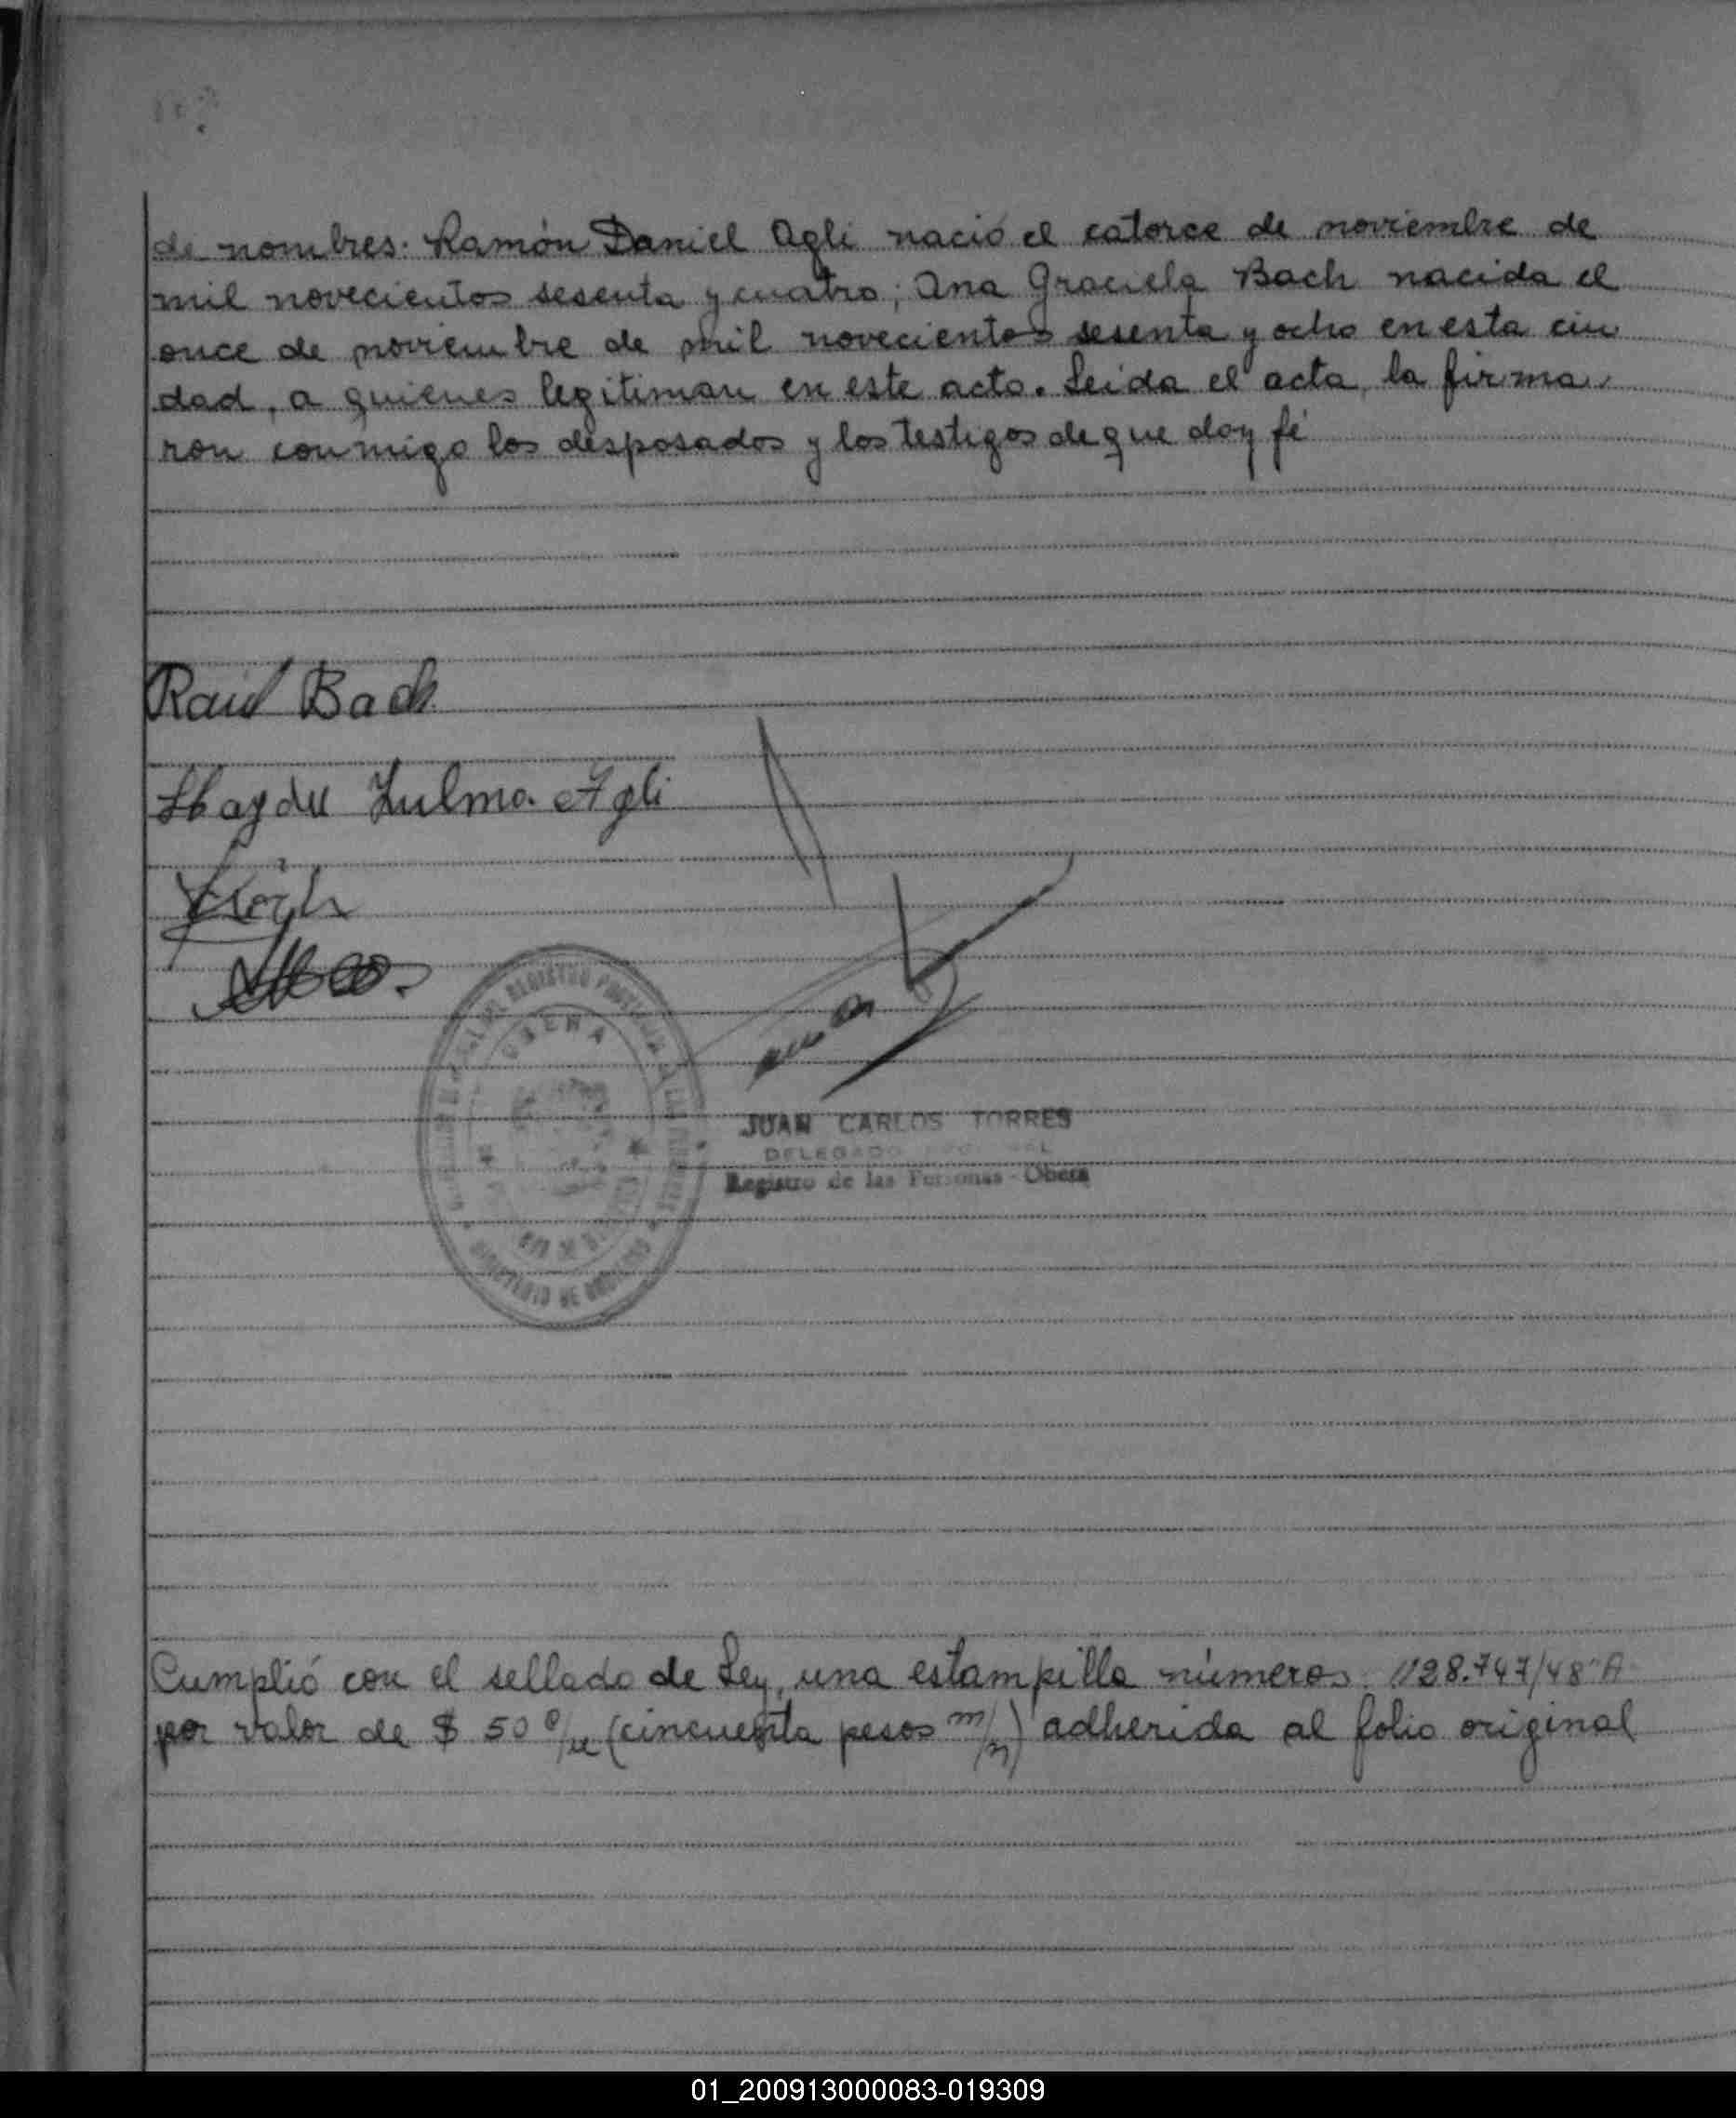 de nombres: Ramón Daniel Agli nació el catorce de noviembre de
mil novecientos sesenta y cuatro; Ana Graciela Bach nacida el
once de noviembre de mil novecientos sesenta y ocho en esta ciu
dad, a quienes legitiman en este acto. Leida el acta, la firma-
ron conmigo los desposados y los testigos de que doy fé
Raul Bach
Haydee Zulma Agli
REGISTRO
OBERA
JUAN CARLOS TORRES
DELEGADO
Registro de las Personas - Oberá
Cumplió con el sellado de Ley, una estampilla números 128.747/48 "A
por valor de $ 50 (cincuenta pesos m/n) adherida al folio original
01_200913000083-019309